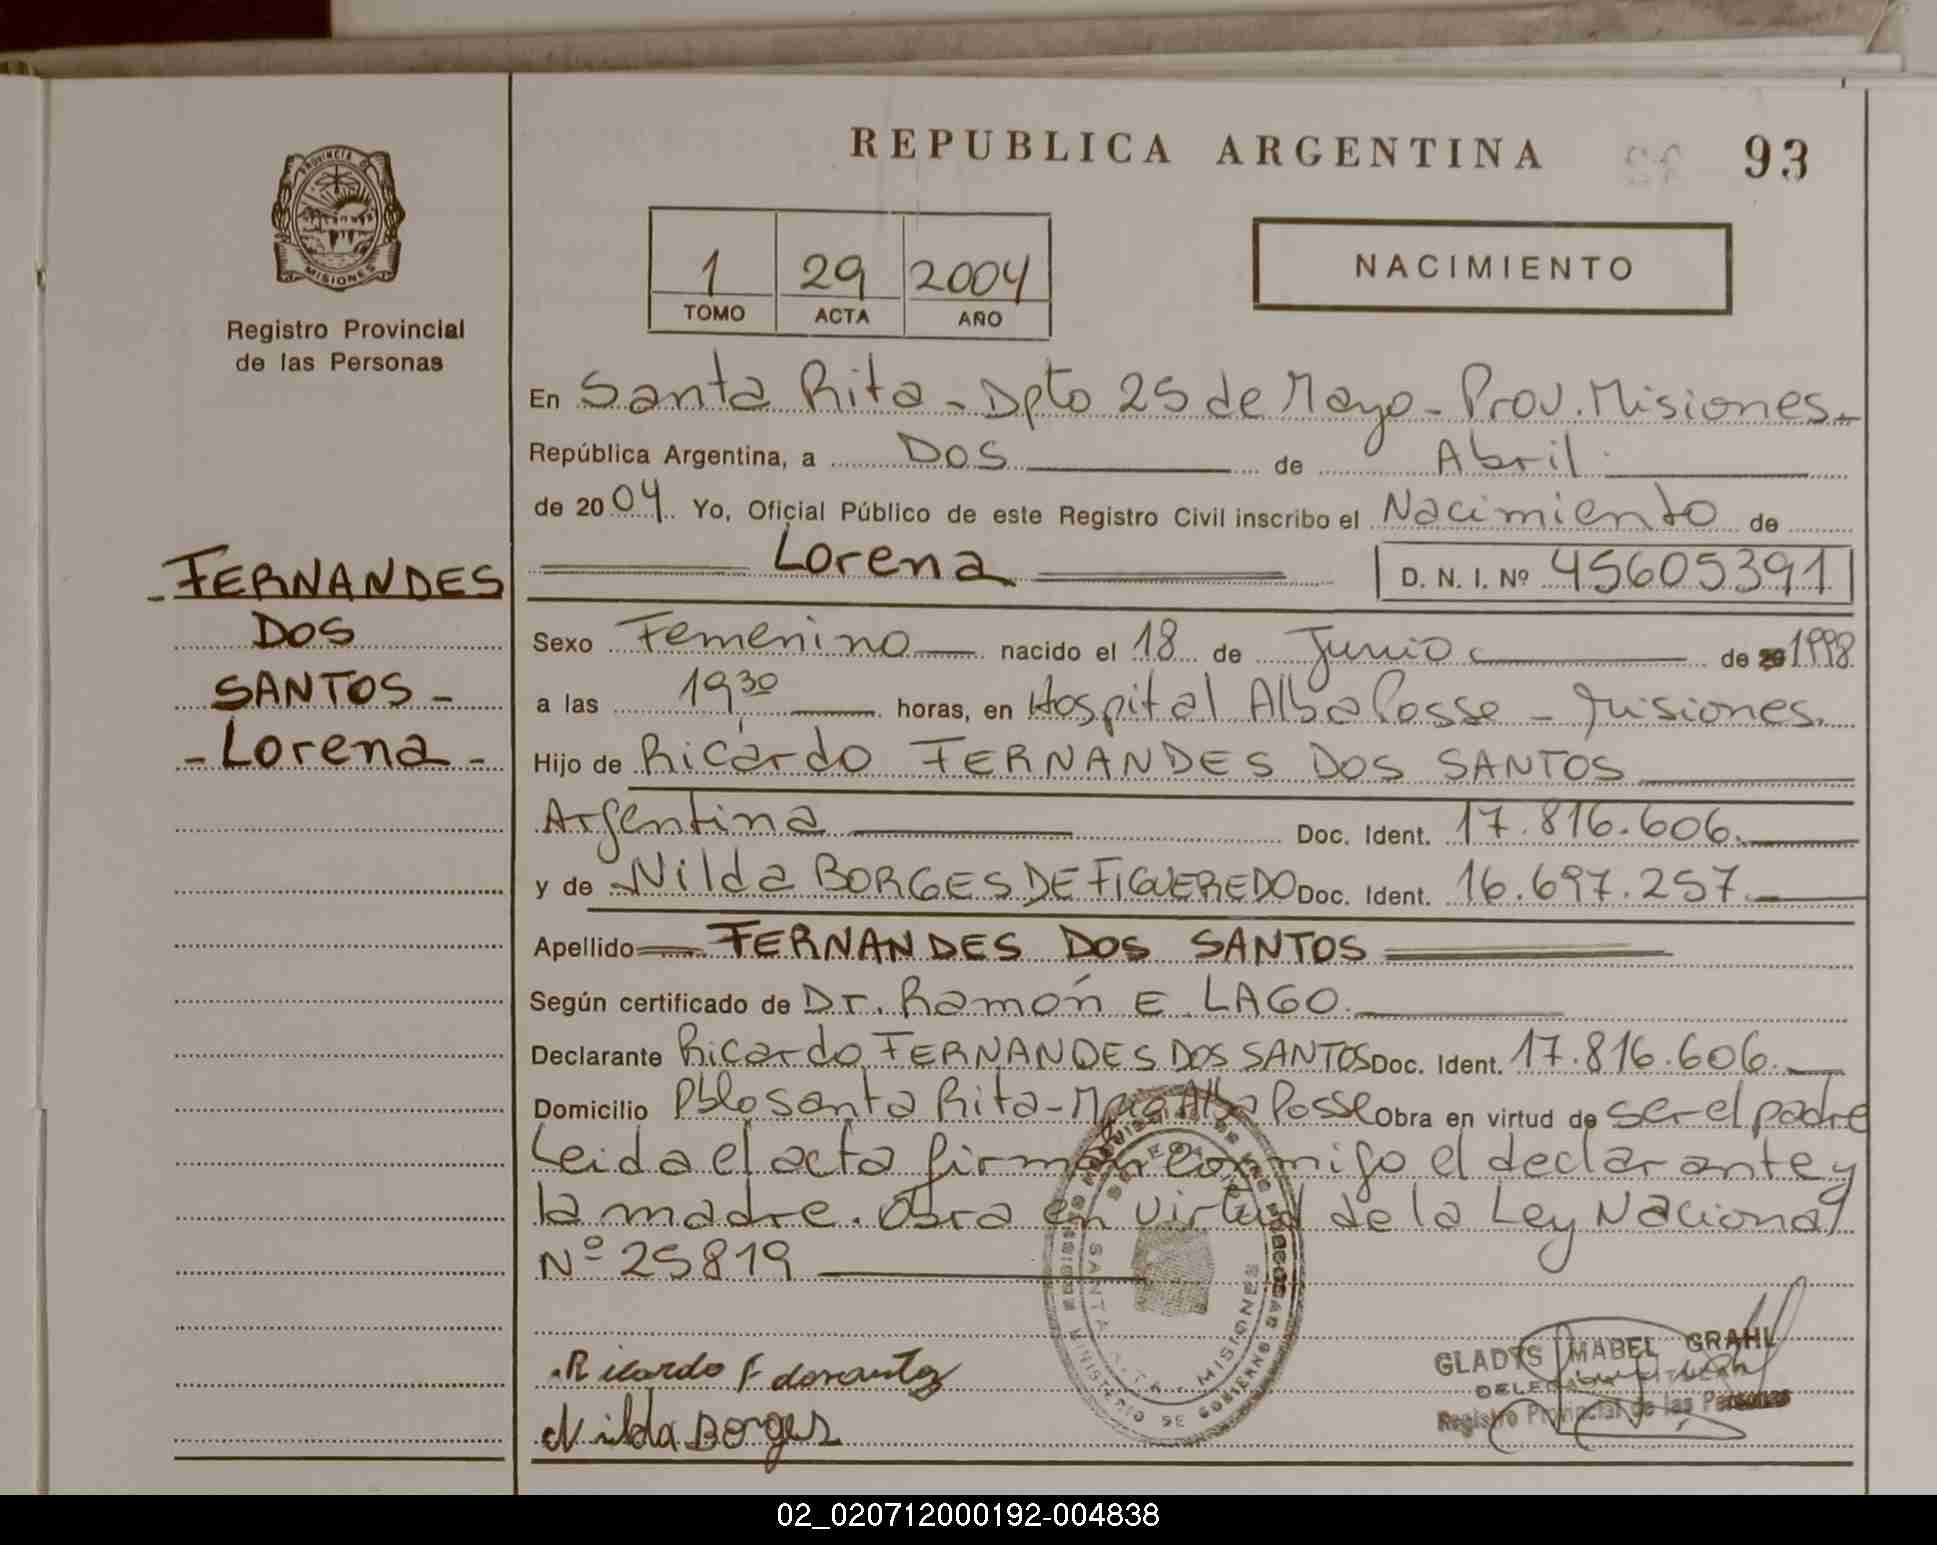 REPUBLICA ARGENTINA
93
PROVINCIA DE
MISIONES
Registro Provincial
de las Personas
1 29 2004
TOMO ACTA AÑO
NACIMIENTO
En Santa Rita - Dpto 25 de Mayo - Prov. Misiones.
República Argentina, a Dos de Abril
de 2004. Yo, Oficial Público de este Registro Civil inscribo el Nacimiento de
Lorena D. N. I. Nº 45605391
- FERNANDES
DOS
SANTOS -
- Lorena -
Sexo Femenino nacido el 18 de Junio de 1998
a las 19 30 horas, en Hospital Alba Posse - Misiones.
Hijo de Ricardo FERNANDES DOS SANTOS
Argentina Doc. Ident. 17.816.606.
y de Nilda BORGES DE FIGUEREDO Doc. Ident. 16.697.257.
Apellido FERNANDES DOS SANTOS
Según certificado de Dr. Ramón E. LAGO.
Declarante Ricardo FERNANDES DOS SANTOS Doc. Ident. 17.816.606.
Domicilio Pblo Santa Rita - Mpio Alba Posse Obra en virtud de ser el padre
Leida el acta firman conmigo el declarante y
la madre. Obra en virtud de la Ley Nacional
Nº 25819
SANTA RITA - MISIONES
Ricardo F
Nilda Borges
GLADYS MABEL GRAHL
Registro Provincial de las Personas
02_020712000192-004838